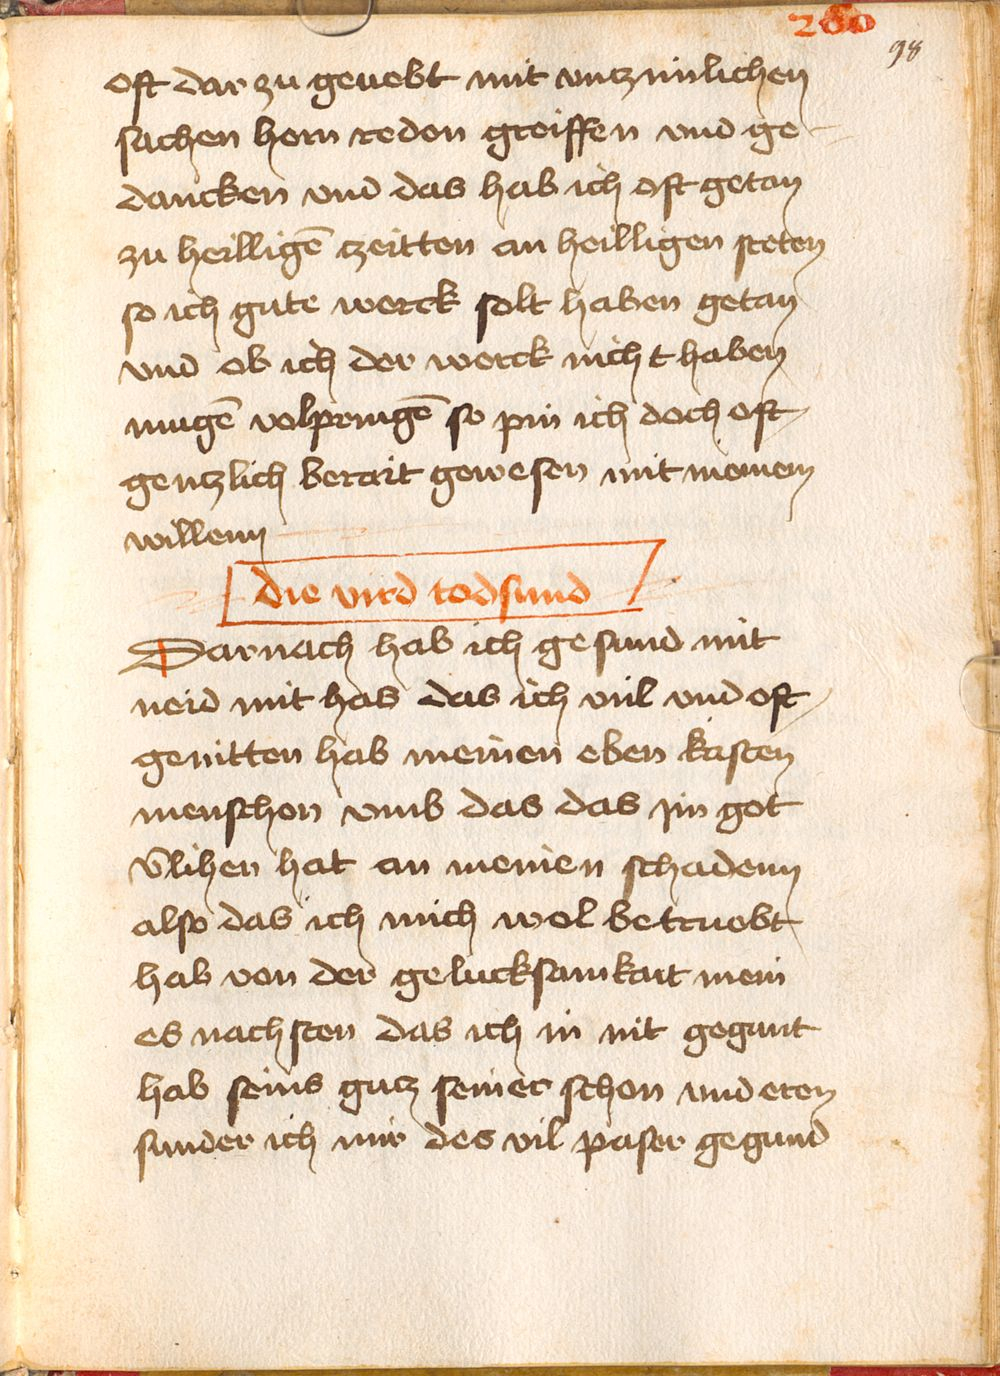 200
98
oft dar zu geuebt mit vnczimlichen
sachen horn redon greiffen vnd ge-
dancken vnd das hab ich oft getan
zu heilligē czeitten an heilligen steten
so ich gute werck solt haben getan
vnd ob ich der werck nicht haben
mugē volpringē so pin ich doch oft
genczlich berait gewesen mit meinem
willenn
die vird todsund
Darnach hab ich gesund mit
neid mit has das ich viil vnd oft
genitten hab meinen eben kristen
menschon vmb das das jm got
v̄lihen hat an meinen schadenn
also das ich mich wol betruebt
hab von der gelucksamkait mein
es nachsten das ich in nit gegunt
hab seins gucz seiner schon vnd eren
sunder ich mir des vil paser gegund